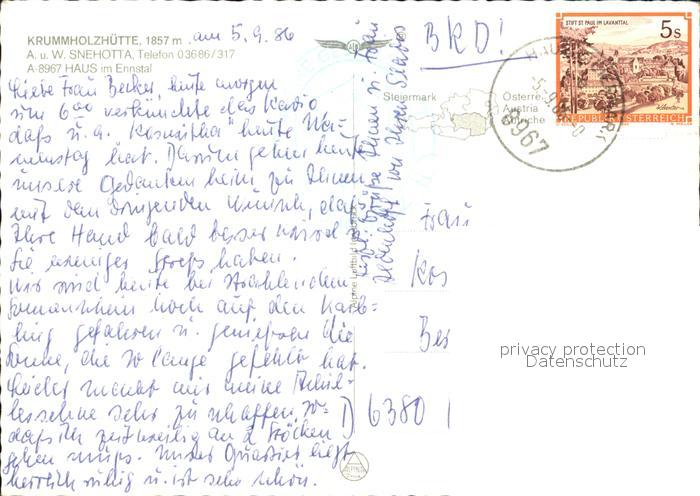 KRUMMHOLZHÜTTE, 1857 m am 5.9.86
A. u. W. SNEHOTTA, Telefon 03686/317
A-8967 HAUS im Ennstal
Liebe Frau Becker, heute morgen
um 6⁰⁰ verkündete das Radio
daß u. a. "Roswitha" heute Na-
menstag hat. Darum gehen heut
unsere Gedanken heim zu Ihnen
mit dem dringenden Wunsch, daß
Ihre Hand bald besser wird u.
Sie weniger Streß haben.
Wir sind heute bei strahlendem
Sonnenschein hoch auf den Haus-
ling gefahren u. genießen die
Sonne, die so lange gefehlt hat.
Leider macht mir meine Achil-
lessehne sehr zu schaffen, so-
daß ich zeitweilig an 2 Stöcken
gehen muß. Unser Quartier liegt
herrlich ruhig u. ist sehr schön.
Grüße Ihnen u. Ihren
von Ihren
BKD!
Steiermark
Österreich
Austria
Alpine Luftbild
Frau
Ros
Bec
D 6380
STIFT ST. PAUL IM LAVANTTAL
5s
REPUBLIK ÖSTERREICH
HAUS
8967
ALPINE
privacy protection
Datenschutz